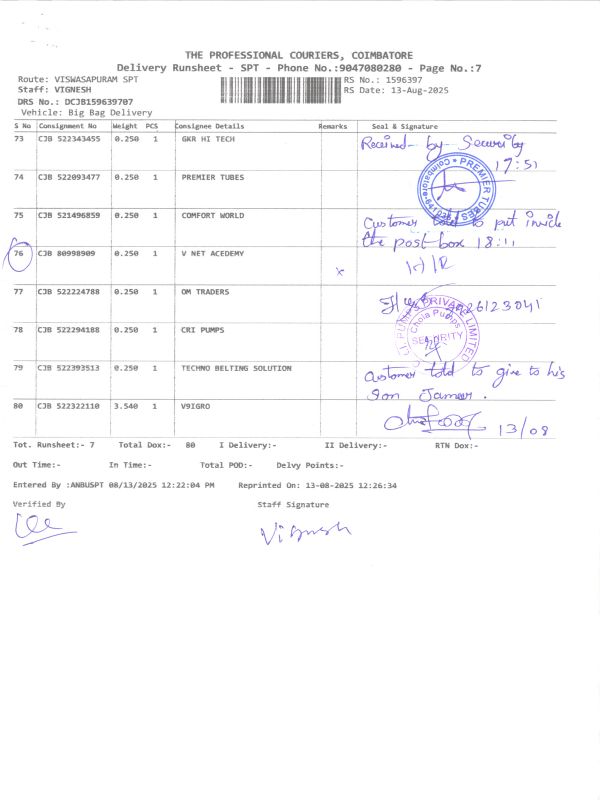 THE PROFESSIONAL COURIERS, COIMBATORE
Delivery Runsheet - SPT - Phone No.:9047080280 - Page No.:7
Route: VISWASAPURAM SPT RS No.: 1596397
Staff: VIGNESH RS Date: 13-Aug-2025
DRS No.: DCJB159639707
Vehicle: Big Bag Delivery
S No Consignment No Weight PCS Consignee Details Remarks Seal & Signature
73 CJB 522343455 0.250 1 GKR HI TECH Received by Security
17:51
74 CJB 522093477 0.250 1 PREMIER TUBES PREMIER TUBES Coimbatore
75 CJB 521496859 0.250 1 COMFORT WORLD Customer told to put inside
the post-box 18:11
76 CJB 80998909 0.250 1 V NET ACEDEMY x
77 CJB 522224788 0.250 1 OM TRADERS
78 CJB 522294188 0.250 1 CRI PUMPS PRIVATE LIMITED Chola Pumps SECURITY
79 CJB 522393513 0.250 1 TECHNO BELTING SOLUTION Customer told to give to his
Son Jameer.
80 CJB 522322110 3.540 1 V9IGRO 13/08
Tot. Runsheet:- 7 Total Dox:- 80 I Delivery:- II Delivery:- RTN Dox:-
Out Time:- In Time:- Total POD:- Delvy Points:-
Entered By :ANBUSPT 08/13/2025 12:22:04 PM Reprinted On: 13-08-2025 12:26:34
Verified By Staff Signature
Vignesh